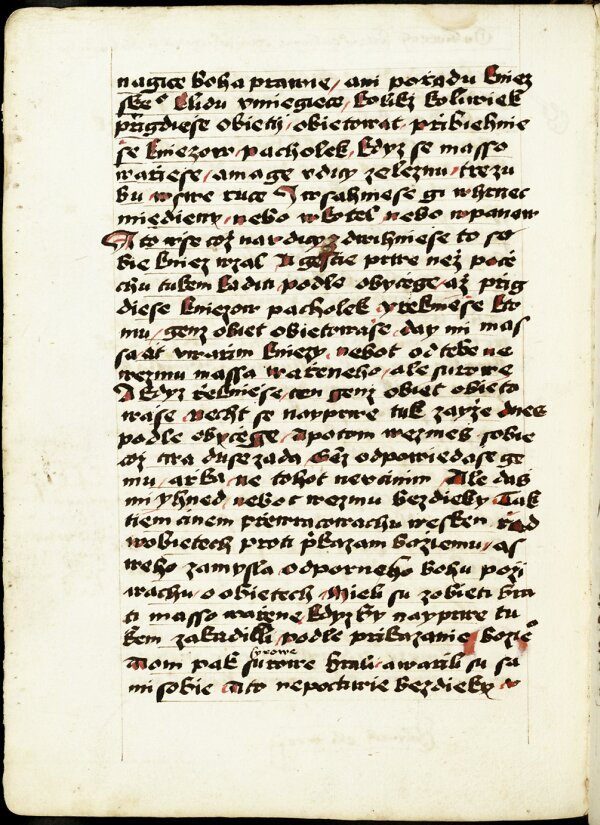 nagice boha prawie / ani pořadu kniez
ske° k lidu vmiegiece / kolikž koliwiek
přigdiese obieti / obietowat / přibiehnie
se kniezow pacholek / kdyz se masso
wařiese / a mage vdici zeleznu / třezu
bu w swe ruce I wsahniese gi w hrnec
miedieny / nebo w kotel nebo w panew
A to wse což na vdicy zdwihniese to so
bie kniez wzal A gestie prwe než poče
chu tukem kaditi podle obyčege / až přig
diese kniezow pacholek / y řekniese kto
mu / genz obiet obietowaše / day mi mas
sa ať vwařim kniezy nebot od tebe ne
wezmu massa wařeneho / ale surowe
A kdyz řekniese ten genz obiet obieto
wase / Necht se nayprwe tuk zapže dnes
podle obyčege / A potom wezmeš sobie
což twa duse zada Genž odpowiedase ge
mu / arka / ne tohot neučinim / Ale daš
mi yhned / nebot wezmu bezdieky Tak
tiem činem přewracowachu wesken řad
w obietech proti přkazani boziemu / a s
weho zamysla odporneho bohu poži
wachu / o obietech Mieli su z obieti bra
ti masso wařene / kdyz by nayprwe tu
kem zakadili / podle přikazanie bozie°
A oni pak syrowe surowe brali / a wařili su sa
mi sobie A to nepoctiwie bezdieky